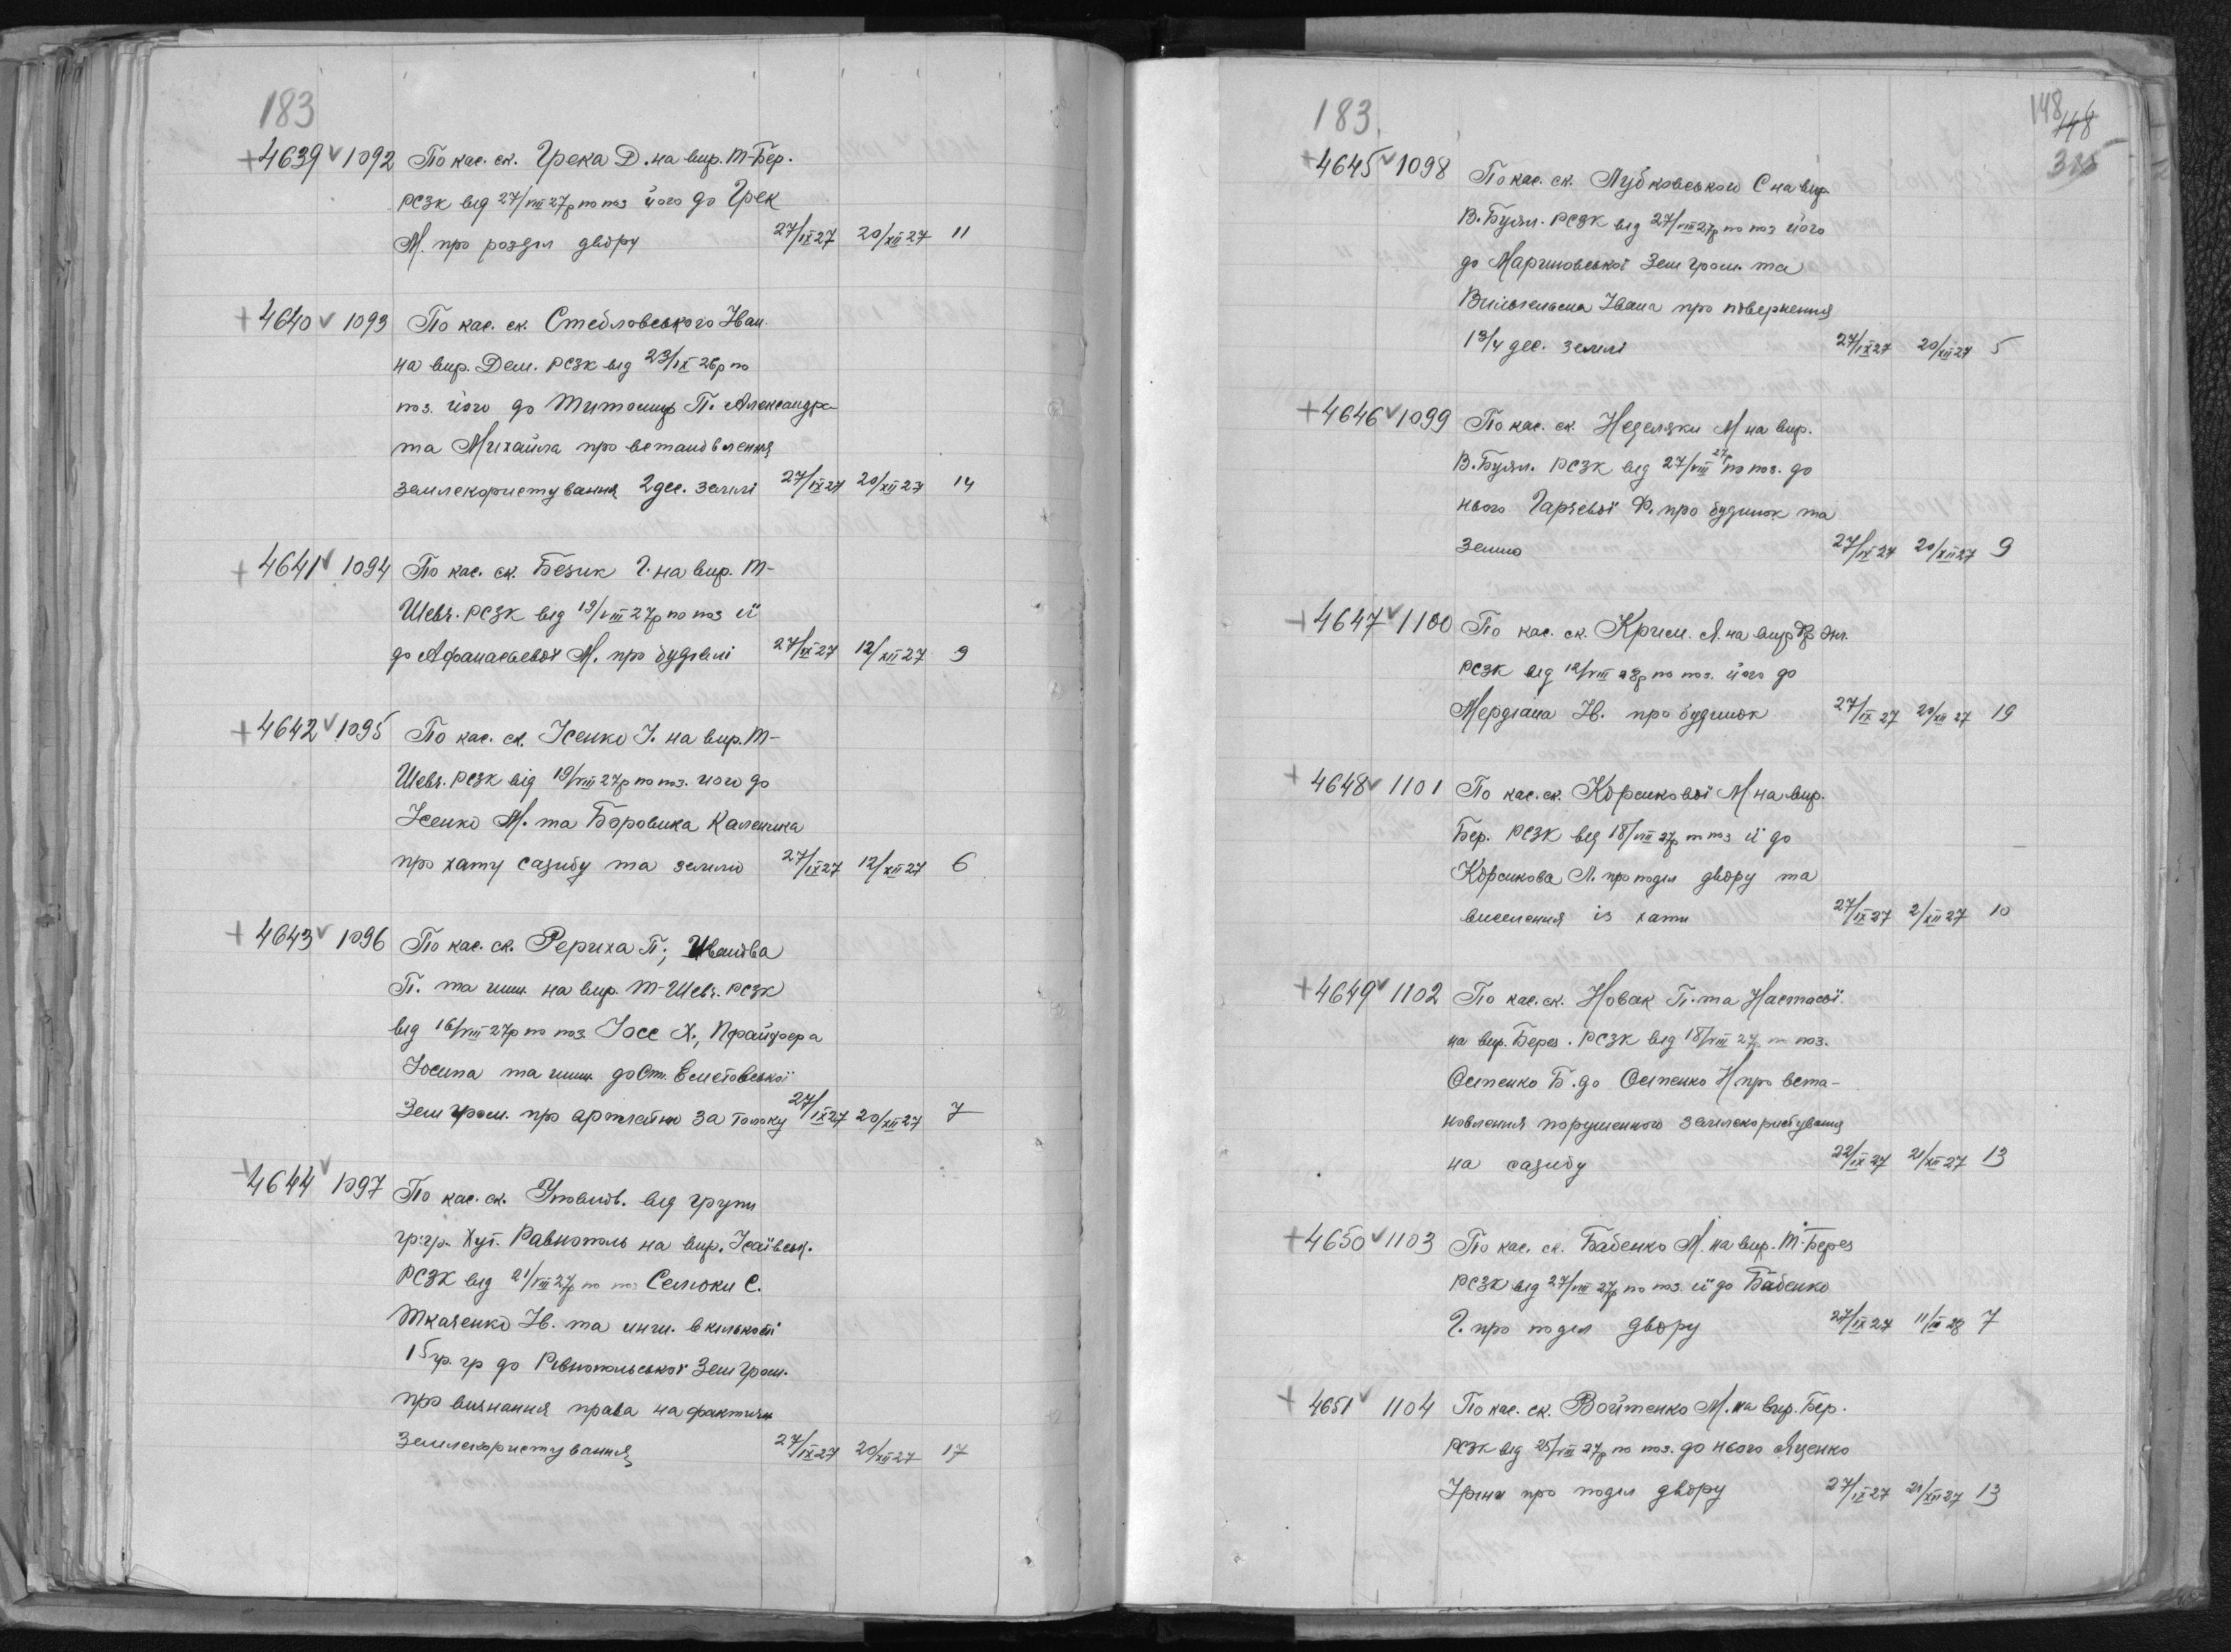 183
+4639 v 1092 По кас. ск. Грека Д. на вир. Т-Бер.
РСЗК від 27/VIII 27р по поз його до Грек
М. про розділ двору 27/IX 27 20/XII 27 11
+4640 v 1093 По кас. ск. Стебловського Іван.
на вир. Дем. РСЗК від 23/IX 26р по
поз. його до Титомир П. Александра
та Михайла про встановлення
землекористування 2 дес. землі 27/IX 27 20/XII 27 14
+4641 v 1094 По кас. ск. Безик Г. на вир. Т-
Шевч. РСЗК від 19/VIII 27р по поз її
до Афанасьевої М. про будівлі 27/IX 27 12/XII 27 9
+4642 v 1095 По кас. ск. Ісенко І. на вир. Т-
Шевч. РСЗК від 19/VIII 27р по поз. його до
Ісенко М. та Боровика Каленика
про хату садибу та землю 27/IX 27 12/XII 27 6
+4643 v 1096 По кас. ск. Рериха П.; Иванова
П. та инш. на вир. Т-Шевч. РСЗК
від 16/VIII 27р по поз. Іосс Х.,
Іосипа та инш. до Ст.
Зем гром. про за толоку 27/IX 27 20/XII 27 7
+4644 v 1097 По кас. ск. Уповнов. від групи
гр.гр. Хут. Равнополь на вир. Ісаївськ.
РСЗК від 21/VIII 27р по поз Семоки С.
Ткаченко Ів. та инш. в кількості
15 гр. гр до Рівнопольської Зем гром.
про визнання права на фактичн
землекористування 27/IX 27 20/XII 27 17
183.
148 148
+4645 v 1098 По кас. ск. Лубковського С на вир
В.Буял. РСЗК від 27/VIII 27р по поз його
до Мариновської Зем гром. та
Вильгельма Івана про повернення
1 3/4 дес. землі 27/IX 27 20/XII 27 5
+4646 v 1099 По кас. ск. Неделяки М на вир.
В.Буял. РСЗК від 27/VIII 27р по поз. до
нього Гарчевої Ф. про будинок та
землю 27/IX 27 20/XII 27 9
+4647 v 1100 По кас. ск. Крим. Я. на вир Фр Энг.
РСЗК від 12/VIII 28р по поз. його до
Мердіана Ів. про будинок 27/IX 27 20/XII 27 19
+4648 v 1101 По кас. ск. Корсикової М на вир.
Бер. РСЗК від 18/VIII 27р по поз її до
Корсикова Л. про поділ двору та
виселення із хати 27/IX 27 2/XII 27 10
+4649 v 1102 По кас. ск. Новак П. та Настасії
на вир. Берез. РСЗК від 18/VIII 27р по поз.
Остенко Б. до Остенко Н про вста-
новлення порушенного землекористування
на садибу 22/IX 27 21/XII 27 13
+4650 v 1103 По кас. ск. Бабенко М. на вир. Т-Берез
РСЗК від 27/VIII 27р по поз. її до Бабенко
Г. про поділ двору 27/IX 27 11/III 28 7
+4651 v 1104 По кас. ск. Войтенко М. на вир. Бер.
РСЗК від 25/VIII 27р по поз. до нього Яценко
Ірини про поділ двору 27/IX 27 21/XII 27 13